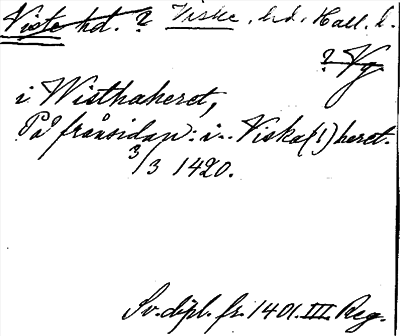 Viste hd. ? Viske, hd. Hall. l.
? Vg.
i Wisthaheret,
På frånsidan: i.. Viska(!) heret.
3/3 1420.
Sv. dipl. fr. 1401. III. Reg.